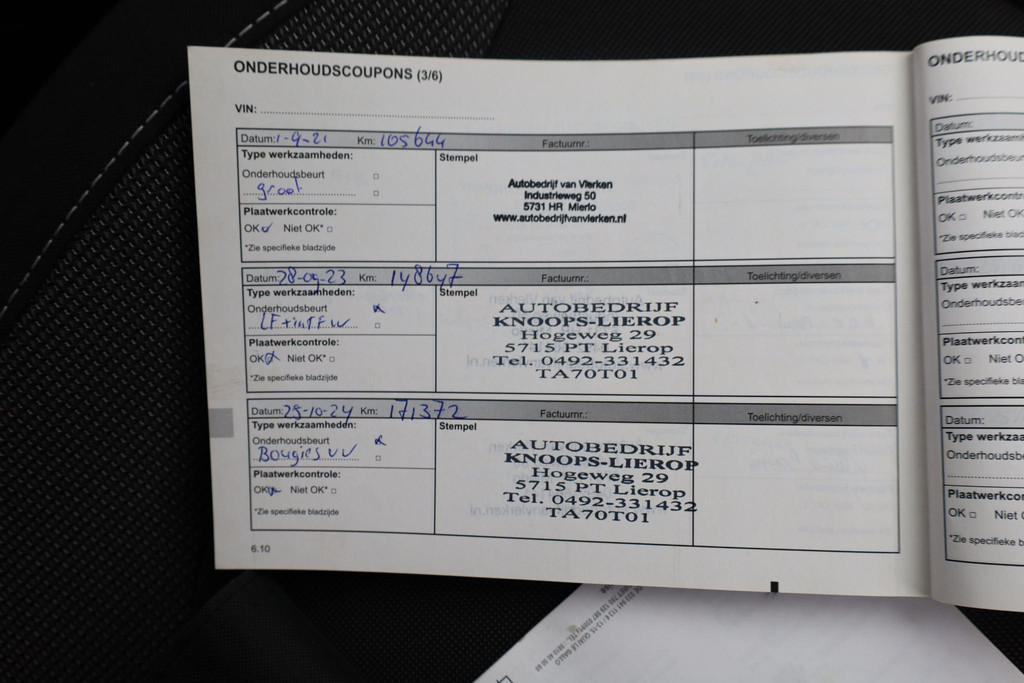 ONDERHOUDSCOUPONS (3/6)
VIN:
Datum: 1-9-21 Km: 105644 Factuurnr.: Toelichting/diversen
Type werkzaamheden: Stempel
Onderhoudsbeurt
groot
Plaatwerkcontrole:
OK Niet OK*
*Zie specifieke bladzijde
Autobedrijf van Vlerken
Industrieweg 50
5731 HR Mierlo
www.autobedrijfvanvlerken.nl
Datum: 28-09-23 Km: 148647 Factuurnr.: Toelichting/diversen
Type werkzaamheden: Stempel
Onderhoudsbeurt
LF+intFvv
Plaatwerkcontrole:
OK Niet OK*
*Zie specifieke bladzijde
AUTOBEDRIJF
KNOOPS-LIEROP
Hogeweg 29
5715 PT Lierop
Tel. 0492-331432
TA70T01
Datum: 29-10-24 Km: 171372 Factuurnr.: Toelichting/diversen
Type werkzaamheden: Stempel
Onderhoudsbeurt
Bougies vv
Plaatwerkcontrole:
OK Niet OK*
*Zie specifieke bladzijde
AUTOBEDRIJF
KNOOPS-LIEROP
Hogeweg 29
5715 PT Lierop
Tel. 0492-331432
TA70T01
6.10
ONDERHOUD
VIN:
Datum:
Type werkzaam
Onderhoudsbeu
Plaatwerkcontr
OK Niet OK
*Zie specifieke blad
Datum:
Type werkzaam
Onderhoudsbe
Plaatwerkcont
OK Niet O
*Zie specifieke bla
Datum:
Type werkza
Onderhoudsb
Plaatwerkco
OK Niet
*Zie specifieke b